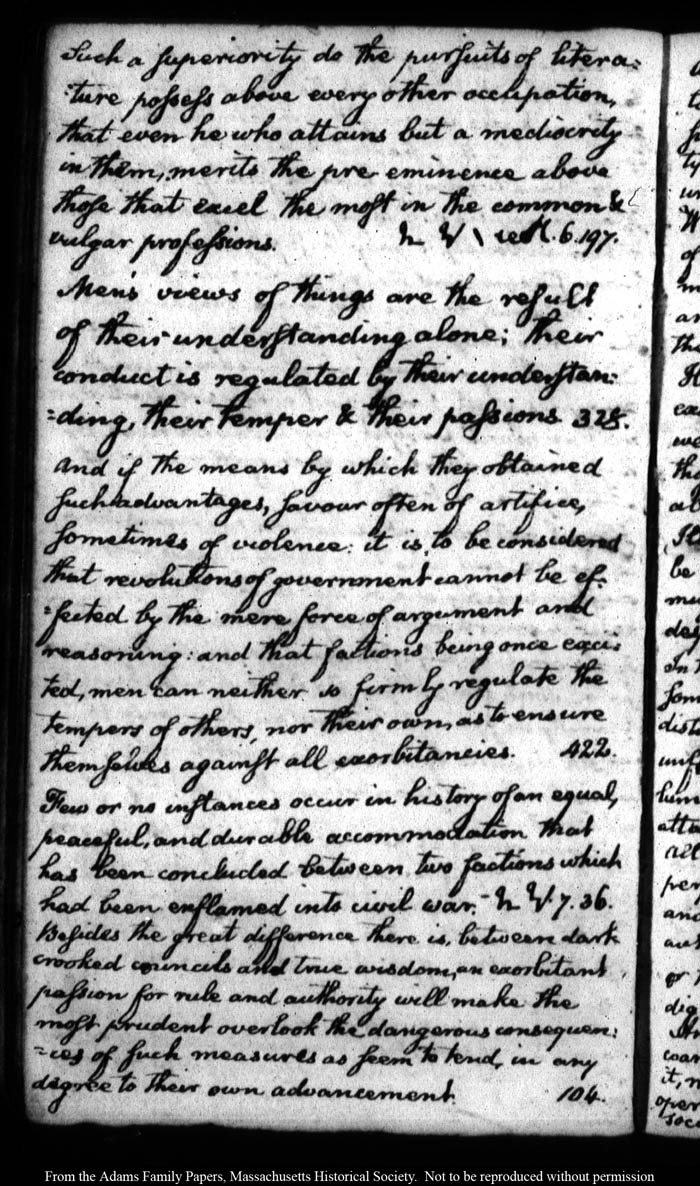 Such a superiority do the pursuits of litera:
:ture possess above every other occupation,
that even he who attains but a mediocrity
in them, merits the pre eminence above
those that excel the most in the common &
vulgar professions. 6. 197.
Men's views of things are the result
of their understanding alone; their
conduct is regulated by their understan:
:ding, their temper & their passions 328.
And if the means by which they obtained
such advantages, savour often of artifice,
sometimes of violence: it is to be considered
that revolutions of government cannot be ef:
:fected by the mere force of argument and
reasoning: and that factions being once exci:
ted, men can neither so firmly regulate the
tempers of others, nor their own, as to ensure
themselves against all exorbitancies. 422.
Few or no instances occur in history of an equal,
peaceful, and durable accommodation that
has been concluded between two factions which
had been enflamed into civil war. 7. 36.
Besides the great difference there is, between dark
crooked councils and true wisdom, an exorbitant
passion for rule and authority will make the
most prudent overlook the dangerous consequen:
:ces of such measures as seem to tend, in any
degree to their own advancement. 104.
From the Adams Family Papers, Massachusetts Historical Society. Not to be reproduced without permission